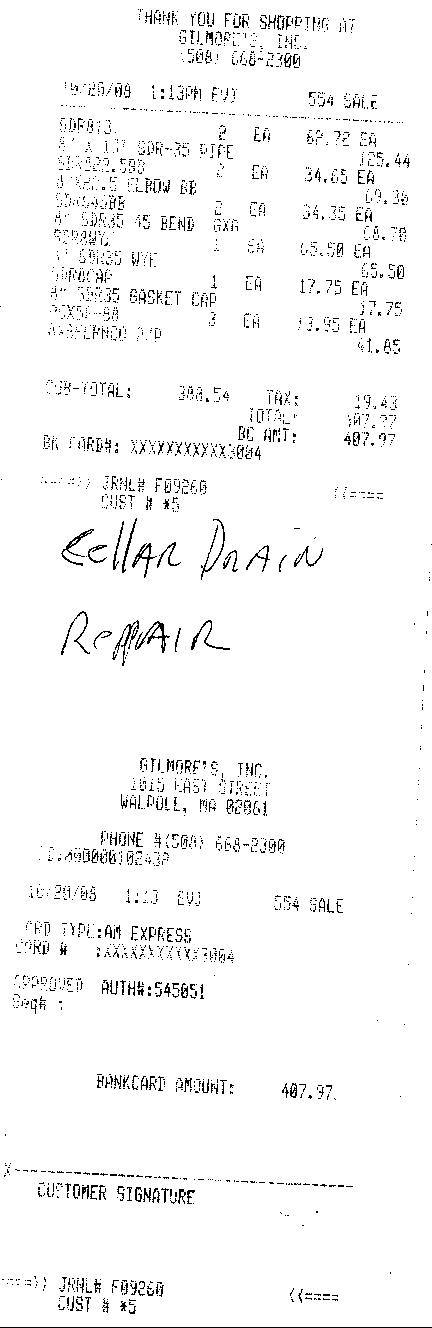 THANK YOU FOR SHOPPING AT
GILMORE'S, INC.
(508) 668-2300
10/28/08 1:13PM EVJ 554 SALE
2 EA EA
125.44
2 EA 34.65 EA
ELBOW BB
69.30
2 EA 34.35 EA
8" SDR35 45 BEND GXG
68.70
1 EA 65.50 EA
SDR35 WYE
65.50
SDR8CAP 1 EA 17.75 EA
8" SDR35 GASKET CAP
17.75
3 EA 13.95 EA
41.85
SUB-TOTAL: 388.54 TAX: 19.43
TOTAL: 407.97
BC AMT: 407.97
BK CARD#: XXXXXXXXXXX3004
====>> JRNL# F09260 <<====
CUST # *5
CellAR DRAIN
RePAIR
GILMORE'S, INC.
1015 EAST STREET
WALPOLE, MA 02081
PHONE #(508) 668-2300
10/28/08 1:13 EVJ 554 SALE
CRD TYPE:AM EXPRESS
CARD # :XXXXXXXXXXX3004
APPROVED AUTH#:545051
Seq# :
BANKCARD AMOUNT: 407.97
X
CUSTOMER SIGNATURE
====>> JRNL# F09260 <<====
CUST # *5